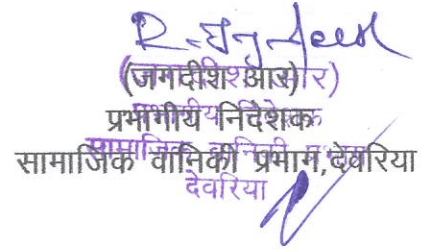 (जगदीश आर)
प्रभागीय निदेशक
सामाजिक वानिकी प्रभाग, देवरिया
देवरिया